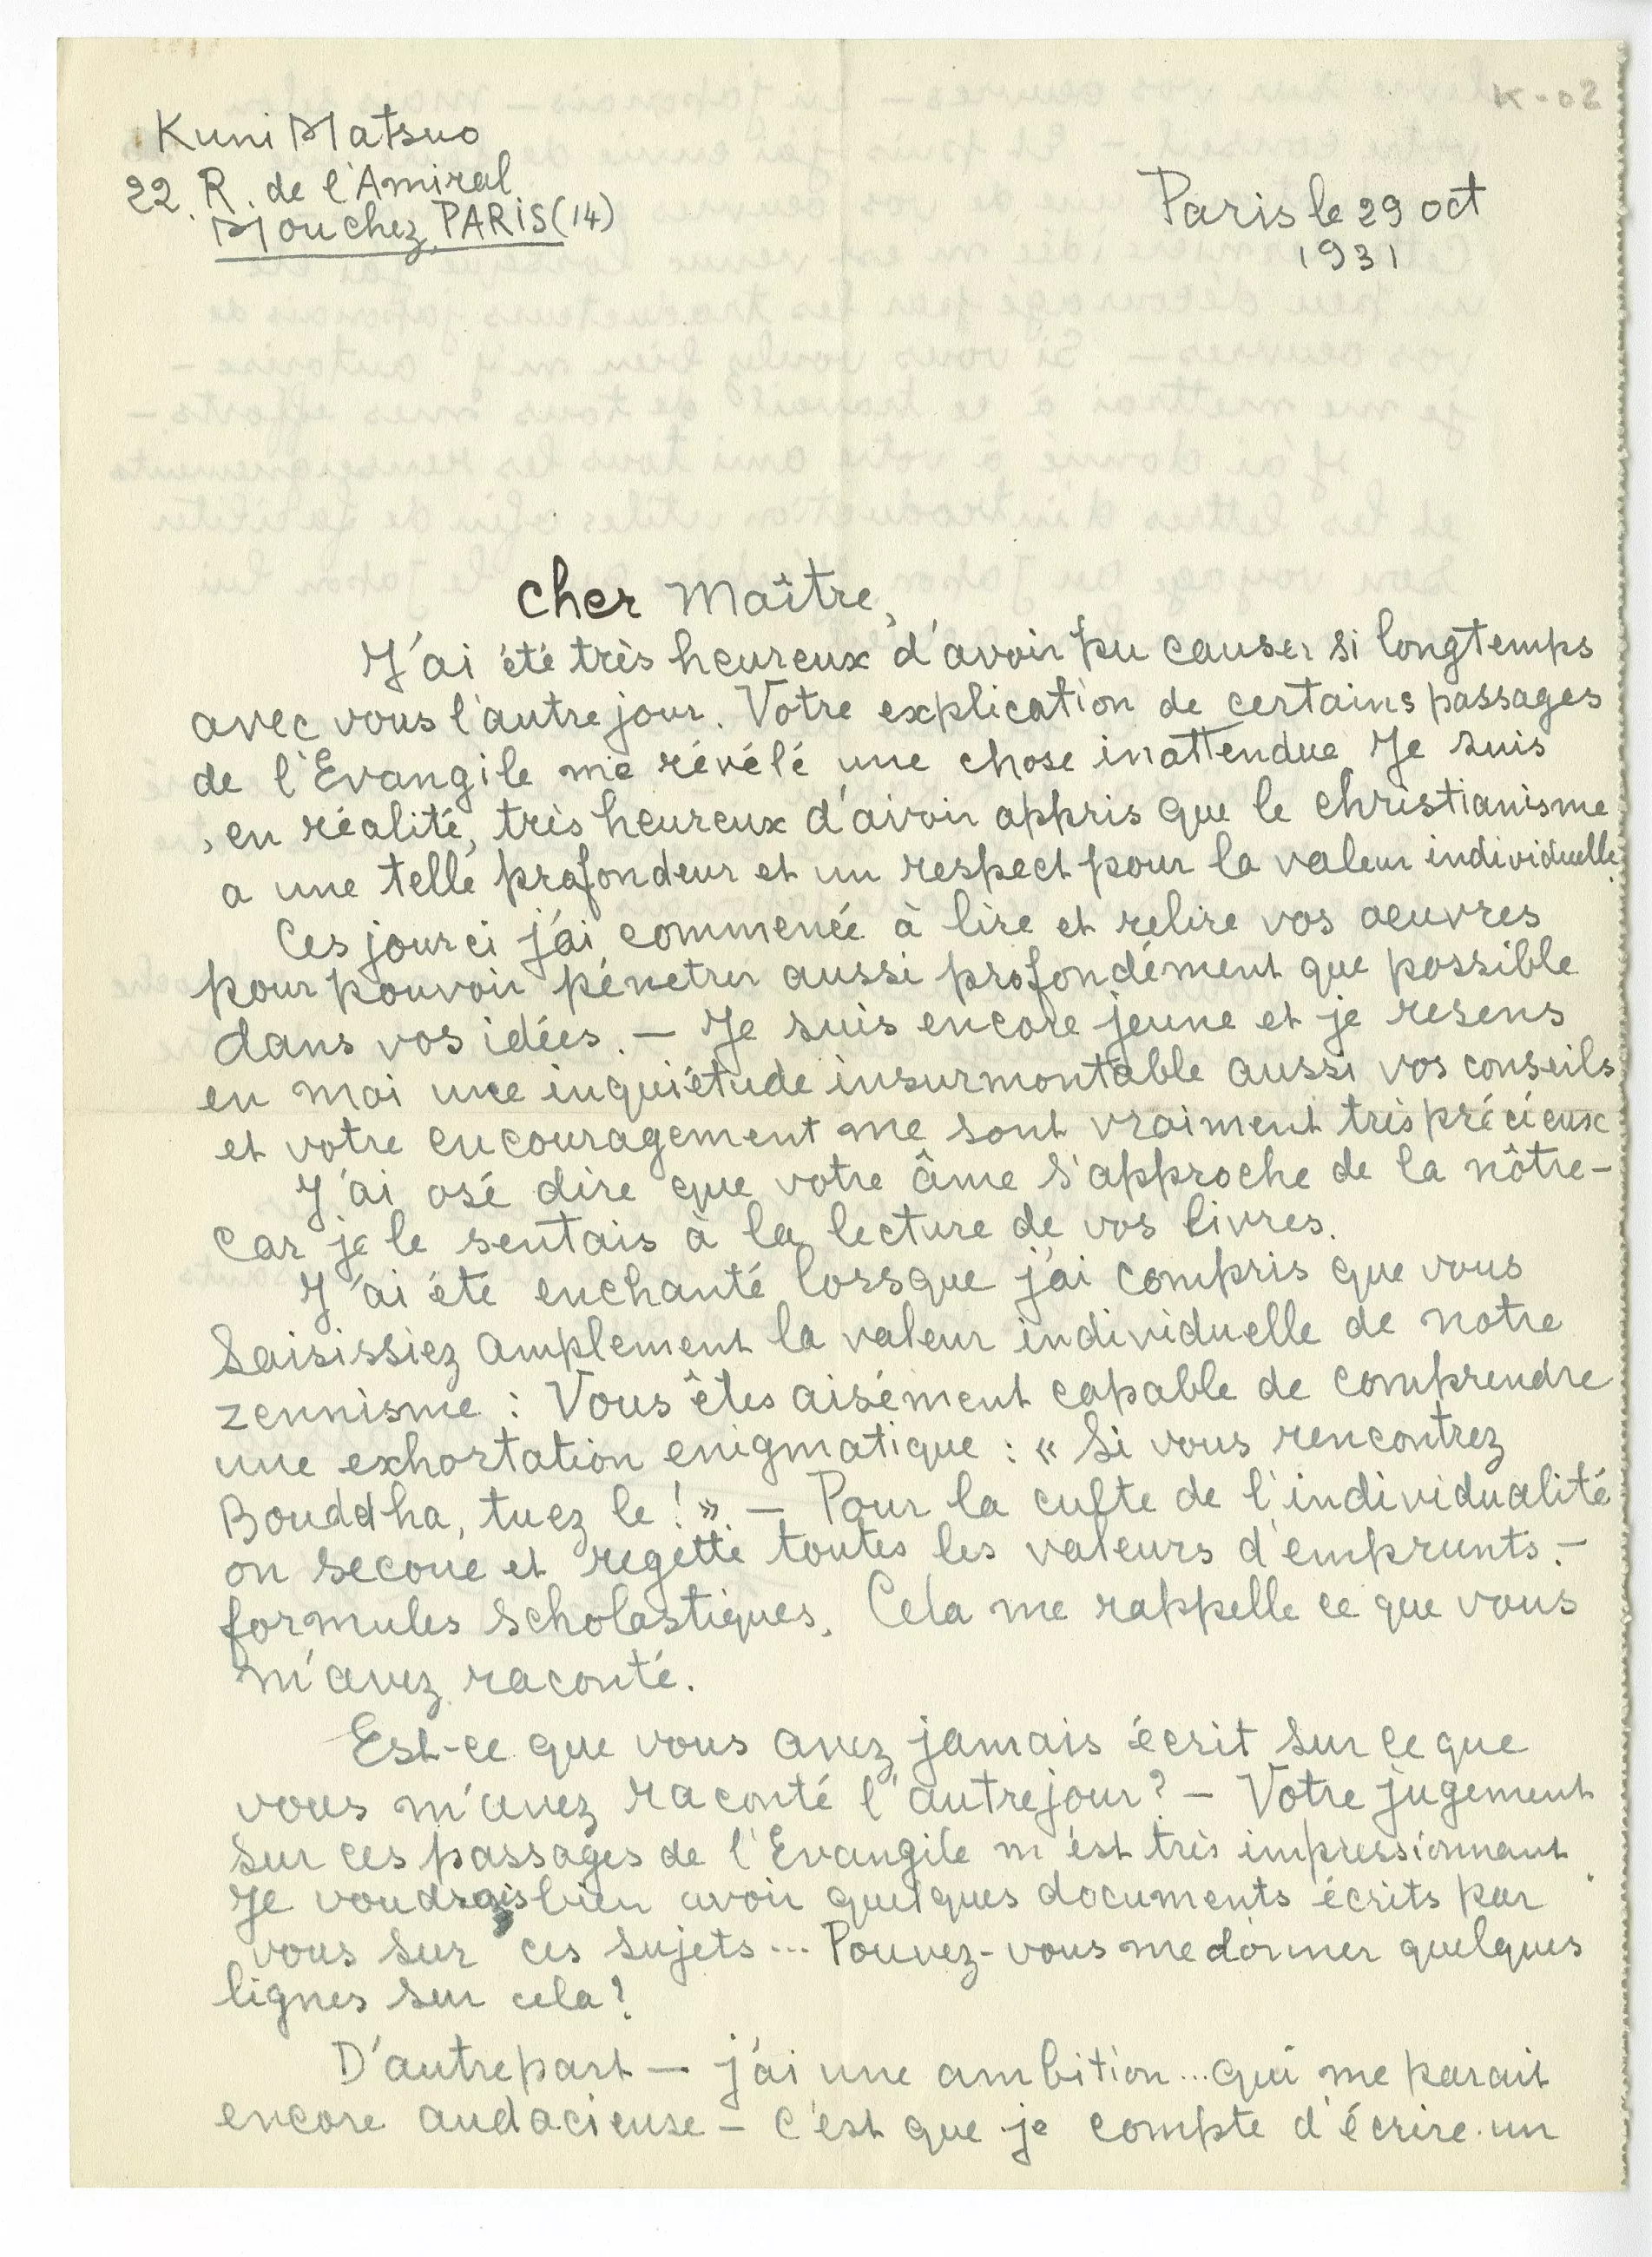 K-02
Kuni Matsuo
22. R. de l'Amiral
Mouchez, PARIS (14)
Paris le 29 oct
1931
Cher Maître,
J'ai été très heureux d'avoir pu causer si longtemps
avec vous l'autre jour. Votre explication de certains passages
de l'Evangile me révélé une chose inattendue Je suis
, en réalité, très heureux d'avoir appris que le christianisme
a une telle profondeur et un respect pour la valeur individuelle.
Ces jour ci j'ai commencé à lire et relire vos oeuvres
pour pouvoir pénetrer aussi profondément que possible
dans vos idées. — Je suis encore jeune et je resens
en moi une inquiétude insurmontable aussi vos conseils
et votre encouragement me sont vraiment très précieux
J'ai osé dire que votre âme s'approche de la nôtre -
Car je le sentais à la lecture de vos livres.
J'ai été enchanté lorsque j'ai compris que vous
saisissiez amplement la valeur individuelle de notre
zennisme : Vous êtes aisément capable de comprendre
une exhortation enigmatique : « Si vous rencontrez
Bouddha, tuez le ! » — Pour la culte de l'individualité
on secoue et regette toutes les valeurs d'emprunts. -
formules scholastiques. Cela me rappelle ce que vous
m'avez raconté.
Est-ce que vous avez jamais écrit sur ce que
vous m'avez raconté l'autre jour ? — Votre jugement
sur ces passages de l'Evangile m'est très impressionnant.
Je voudrais bien avoir quelques documents écrits par
vous sur ces sujets ... Pouvez-vous me donner quelques
lignes sur cela ?
D'autre part — j'ai une ambition ... qui me parait
encore audacieuse — C'est que je compte d'écrire un